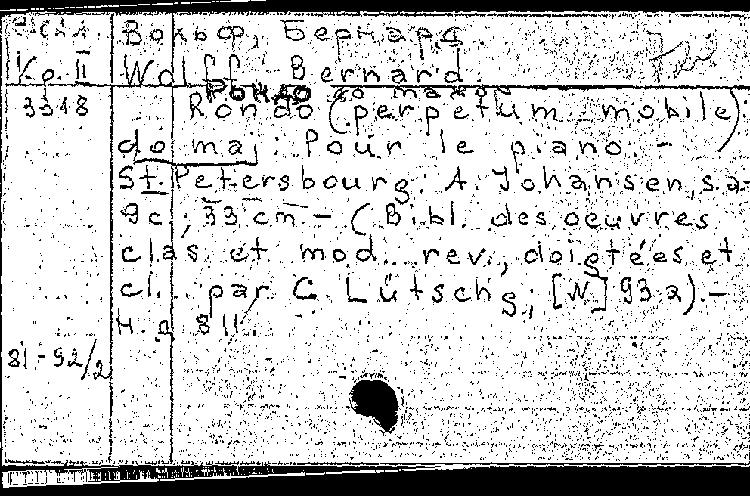 Вольф, Бернард
Кр. II Wolff Bernard.
Рондо до мажор
3318 Rondo (perpetum mobile)
do maj: Pour le piano. –
St. Petersbourg: A. Johansen, s.a–
9c.; 33 cm. – (Bibl. des oeuvres
clas et mod. rev., doigtées et
cl. par C. Lütschg; [N] 93 a). –
Н. д 811.
81-92/2